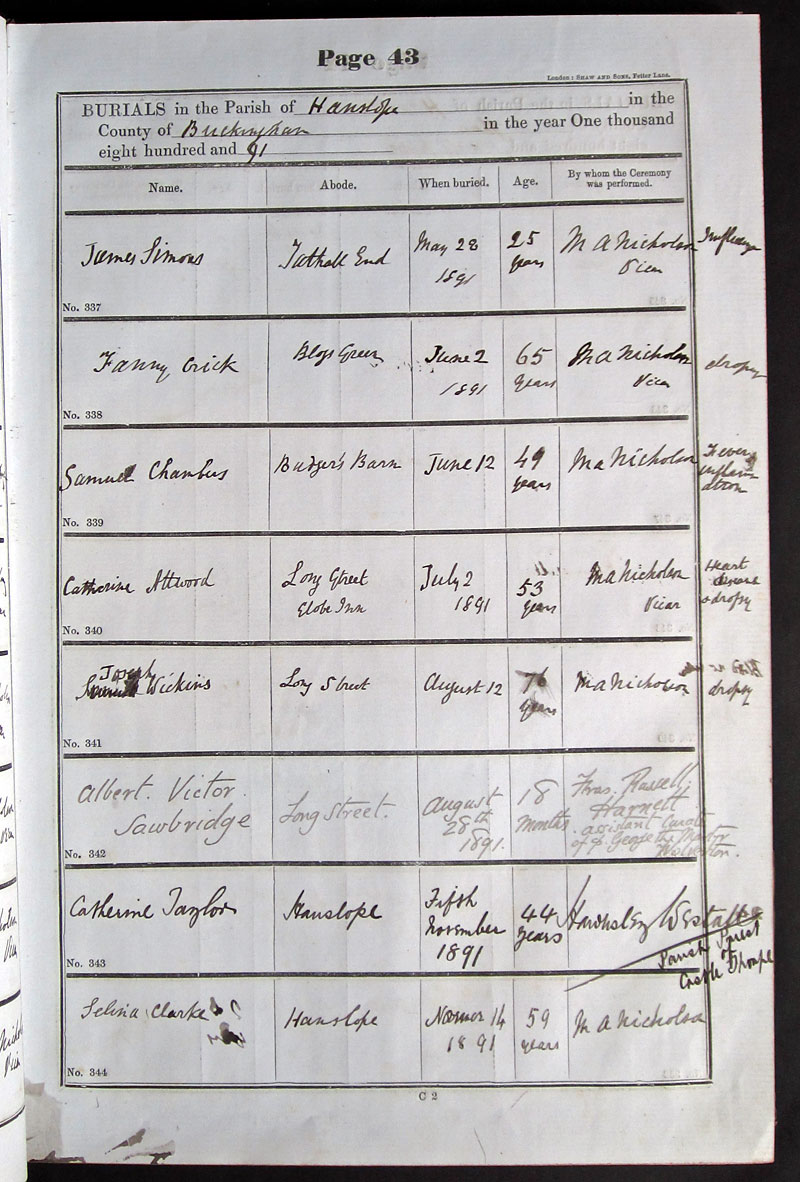 Page 43
London: SHAW AND SONS, Fetter Lane.
BURIALS in the Parish of Hanslope in the
County of Buckingham in the year One thousand
eight hundred and 91
Name. Abode. When buried. Age. By whom the Ceremony was performed.
James Simons Tathall End May 28 1891 25 years M A Nicholson Vicar Influenza
No. 337
Fanny Crick Bloys Green June 2 1891 65 years M A Nicholson Vicar dropsy
No. 338
Samuel Chambers Badger's Barn June 12 49 years M A Nicholson Fever inflammation
No. 339
Catherine Attwood Long Street Globe Inn July 2 1891 53 years M A Nicholson Vicar Heart disease & dropsy
No. 340
Joseph Wickins Long Street August 12 76 years M A Nicholson dropsy
No. 341
Albert. Victor. Sawbridge Long Street. August 28th 1891. 18 Months. Fras. Russell Harnett assistant Curate of S. George the Martyr Wolverton.
No. 342
Catherine Taylor Hanslope Fifth November 1891 44 years Westall Parish Priest of Castle Thorpe
No. 343
Selina Clarke Hanslope 14 1891 59 years M A Nicholson
No. 344
C 2